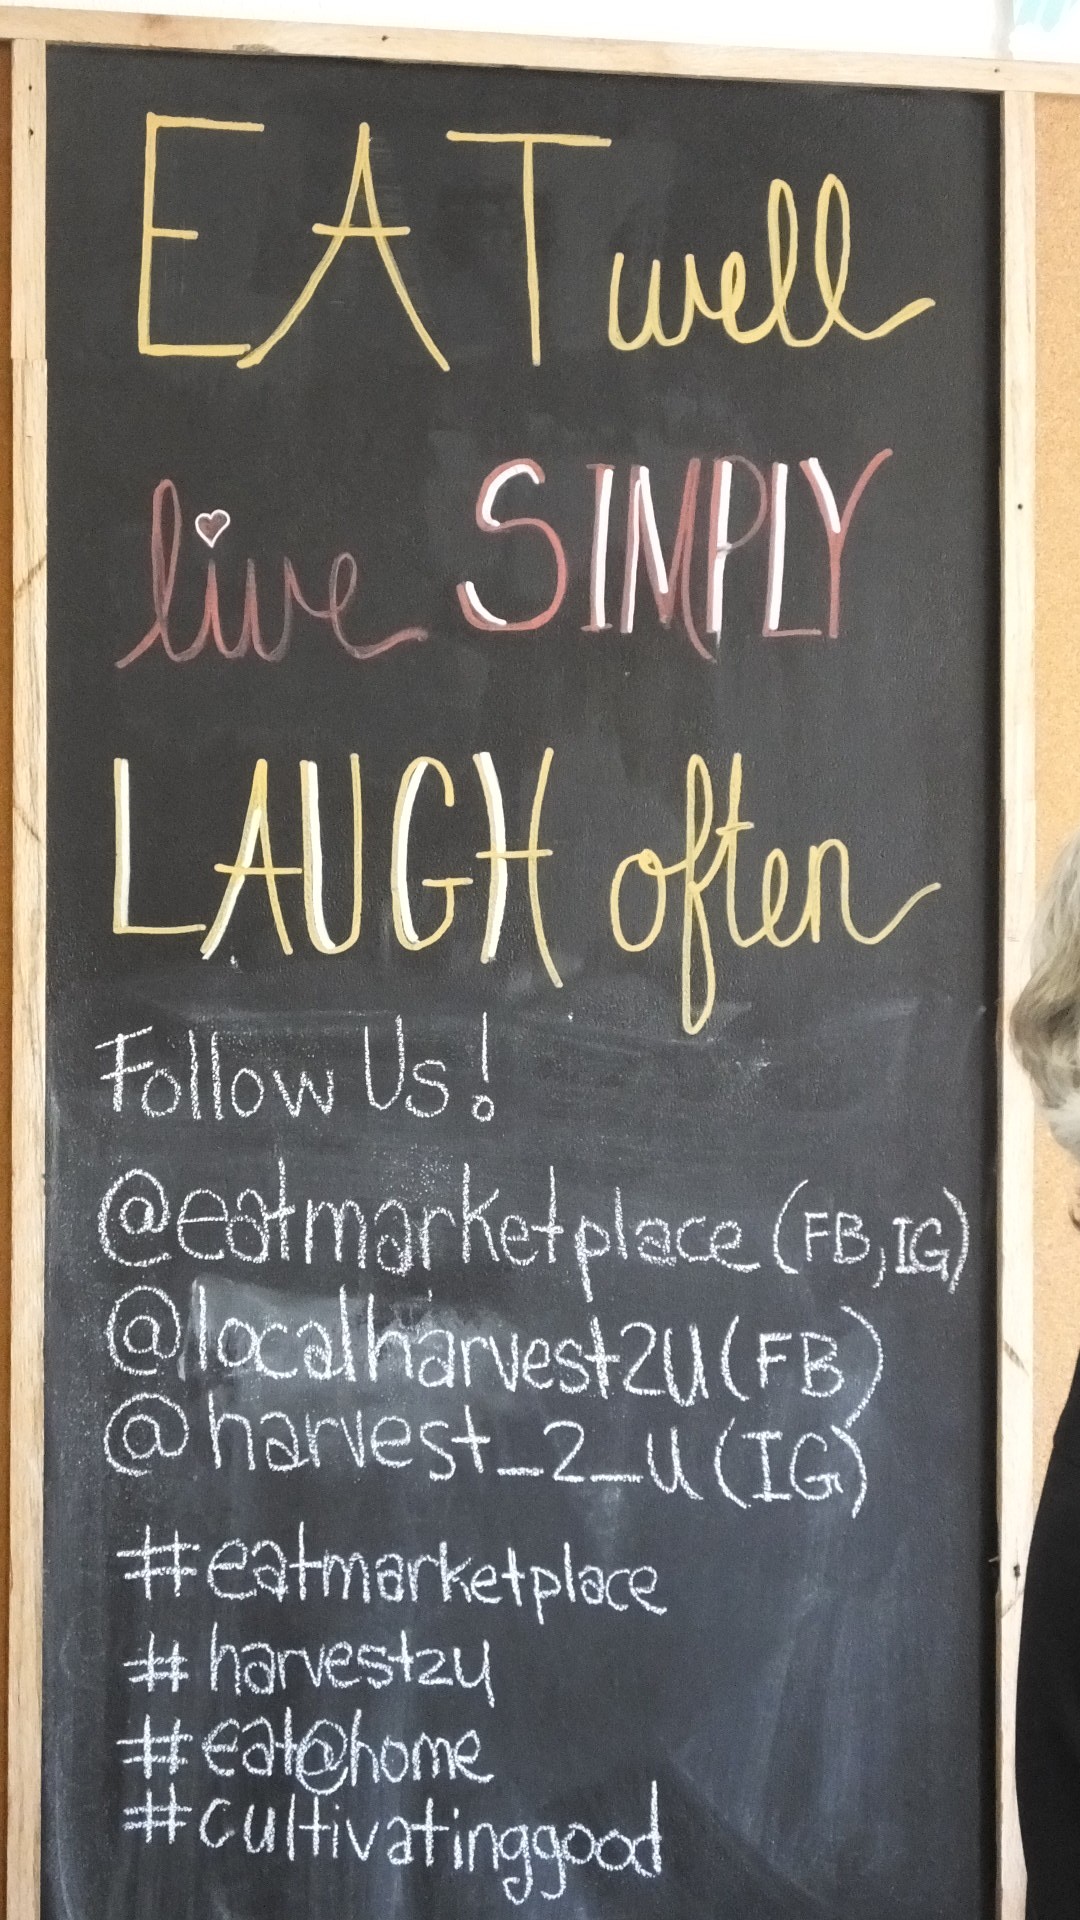 EAT well
live SIMPLY
LAUGH often
Follow Us!
@eatmarketplace (FB, IG)
@localharvest2U (FB)
@harvest_2_U (IG)
#eatmarketplace
#harvest2U
#eat@home
#cultivatinggood